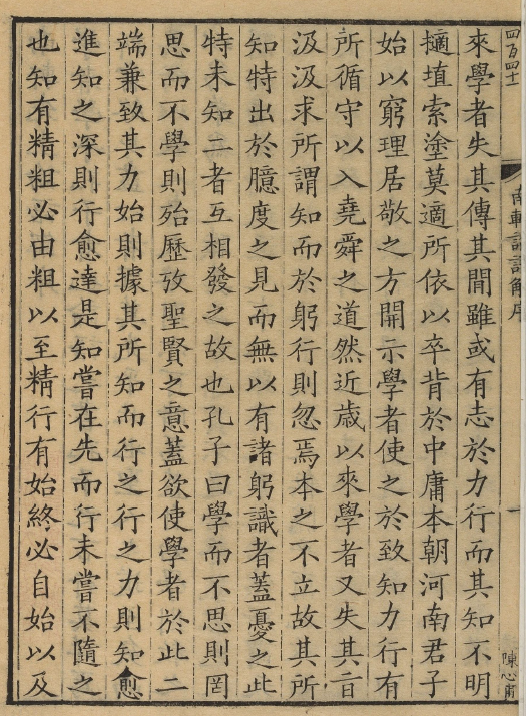 四百四十
南軒論語解序
一
陳心甫
來學者失其傳其間雖或有志於力行而其知不明
擿埴索塗莫適所依以卒背於中庸本朝河南君子
始以窮理居敬之方開示學者使之於致知力行有
所循守以入堯舜之道然近歲以來學者又失其旨
汲汲求所謂知而於躬行則忽焉本之不立故其所
知特出於臆度之見而無以有諸躬識者蓋憂之此
特未知二者互相發之故也孔子曰學而不思則罔
思而不學則殆歷攷聖賢之意蓋欲使學者於此二
端兼致其力始則據其所知而行之行之力則知愈
進知之深則行愈達是知嘗在先而行未嘗不隨之
也知有精粗必由粗以至精行有始終必自始以及